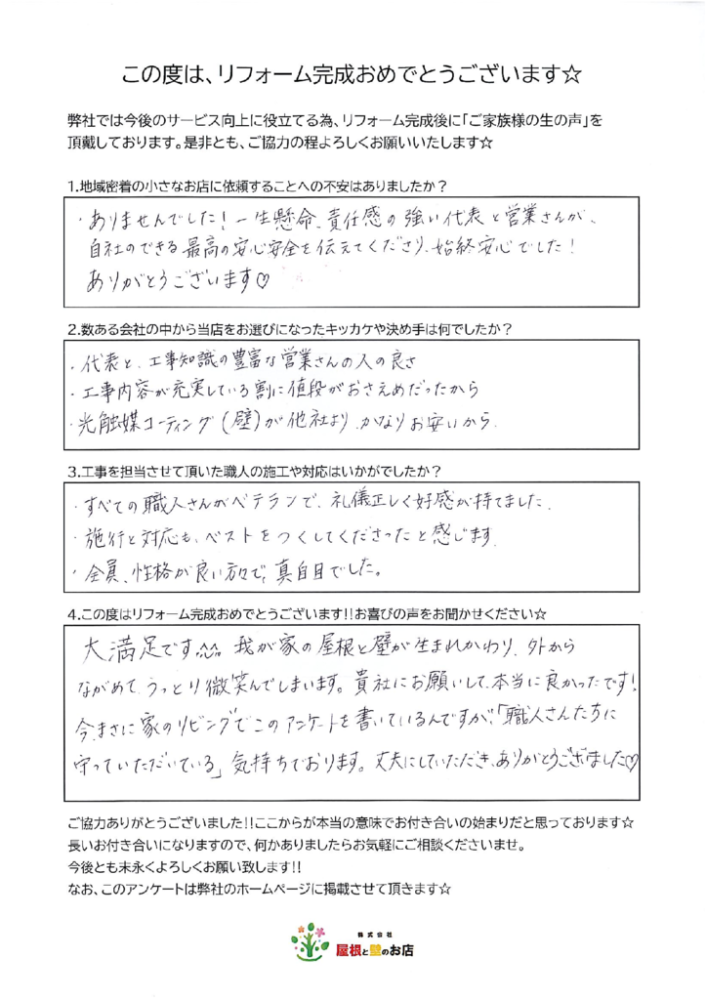 この度は、リフォーム完成おめでとうございます☆
弊社では今後のサービス向上に役立てる為、リフォーム完成後に「ご家族様の生の声」を
頂戴しております。是非とも、ご協力の程よろしくお願いいたします☆
1.地域密着の小さなお店に依頼することへの不安はありましたか？
・ありませんでした！一生懸命、責任感の強い代表と営業さんが、
自社のできる最高の安心安全を伝えてくださり、始終安心でした！
ありがとうございます♡
2.数ある会社の中から当店をお選びになったキッカケや決め手は何でしたか？
・代表と、工事知識の豊富な営業さんの人の良さ
・工事内容が充実している割に値段がおさえめだったから
・光触媒コーティング(壁)が他社より、かなりお安いから。
3.工事を担当させて頂いた職人の施工や対応はいかがでしたか？
・すべての職人さんがベテランで、礼儀正しく好感が持てました。
・施行と対応も、ベストをつくしてくださったと感じます。
・全員、性格が良い方々で、真白目でした。
4.この度はリフォーム完成おめでとうございます!!お喜びの声をお聞かせください☆
大満足です^^ 我が家の屋根と壁が生まれかわり、外から
ながめて、うっとり微笑んでしまいます。貴社にお願いして、本当に良かったです！
今、まさに家のリビングでこのアンケートを書いているんですが、「職人さんたちに
守っていただいている」気持ちでおります。丈夫にしていただき、ありがとうございました♡
ご協力ありがとうございました!!ここからが本当の意味でお付き合いの始まりだと思っております☆
長いお付き合いになりますので、何かありましたらお気軽にご相談くださいませ。
今後とも末永くよろしくお願い致します!!
なお、このアンケートは弊社のホームページに掲載させて頂きます☆
株式会社
屋根と壁のお店